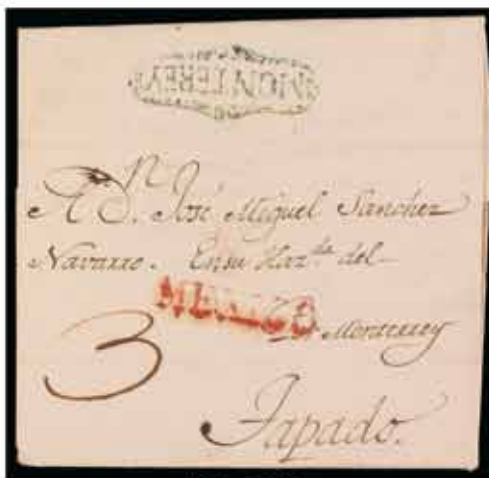 MONTEREY
A D.n José Miguel Sanchez
Navarro. En su Haz.da del
MEXICO
Monterrey
3
Tapado.